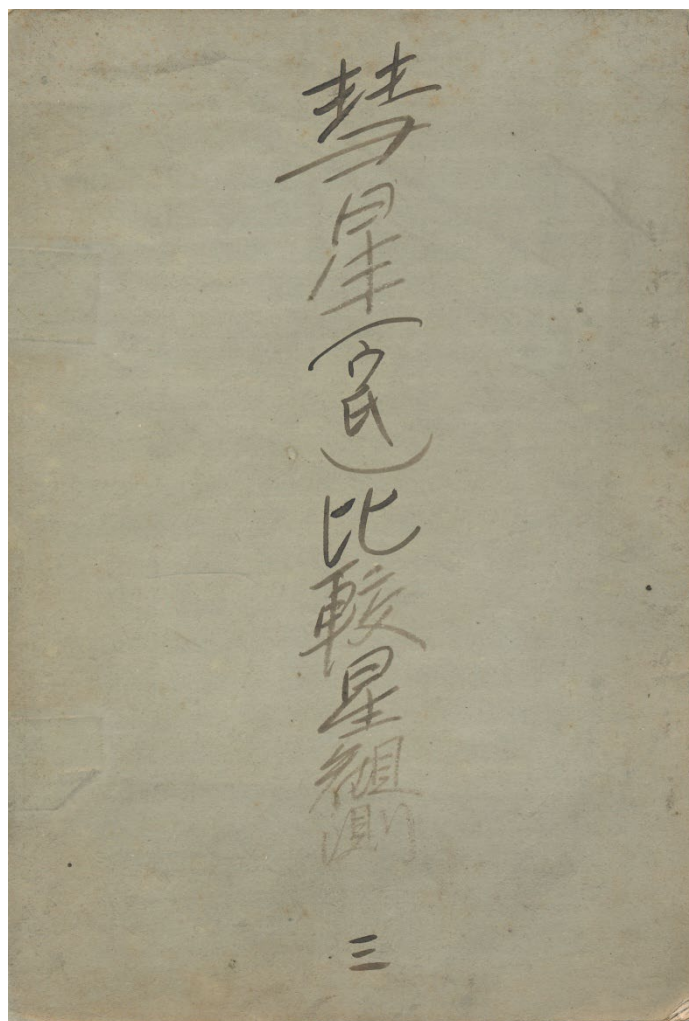 彗星(ウ氏)比較星観測
三